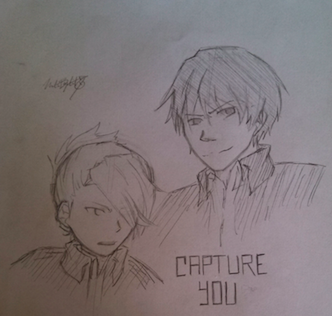 CAPTURE
YOU